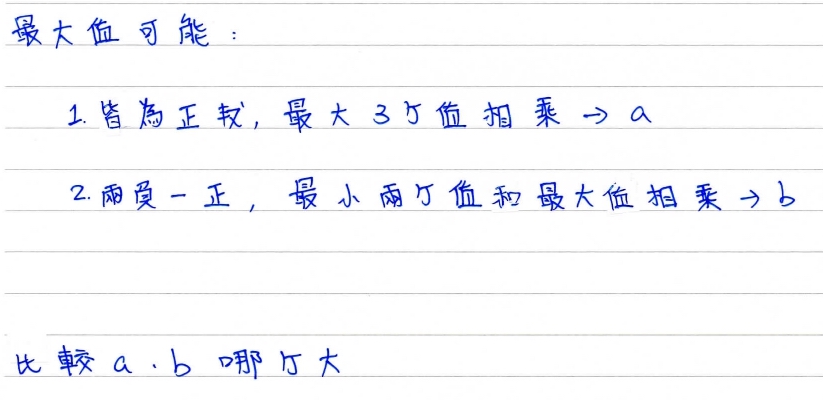 最大值可能：
1. 皆為正数, 最大3个值相乘 → a
2. 兩負一正, 最小兩个值和最大值相乘 → b
比較a.b哪个大